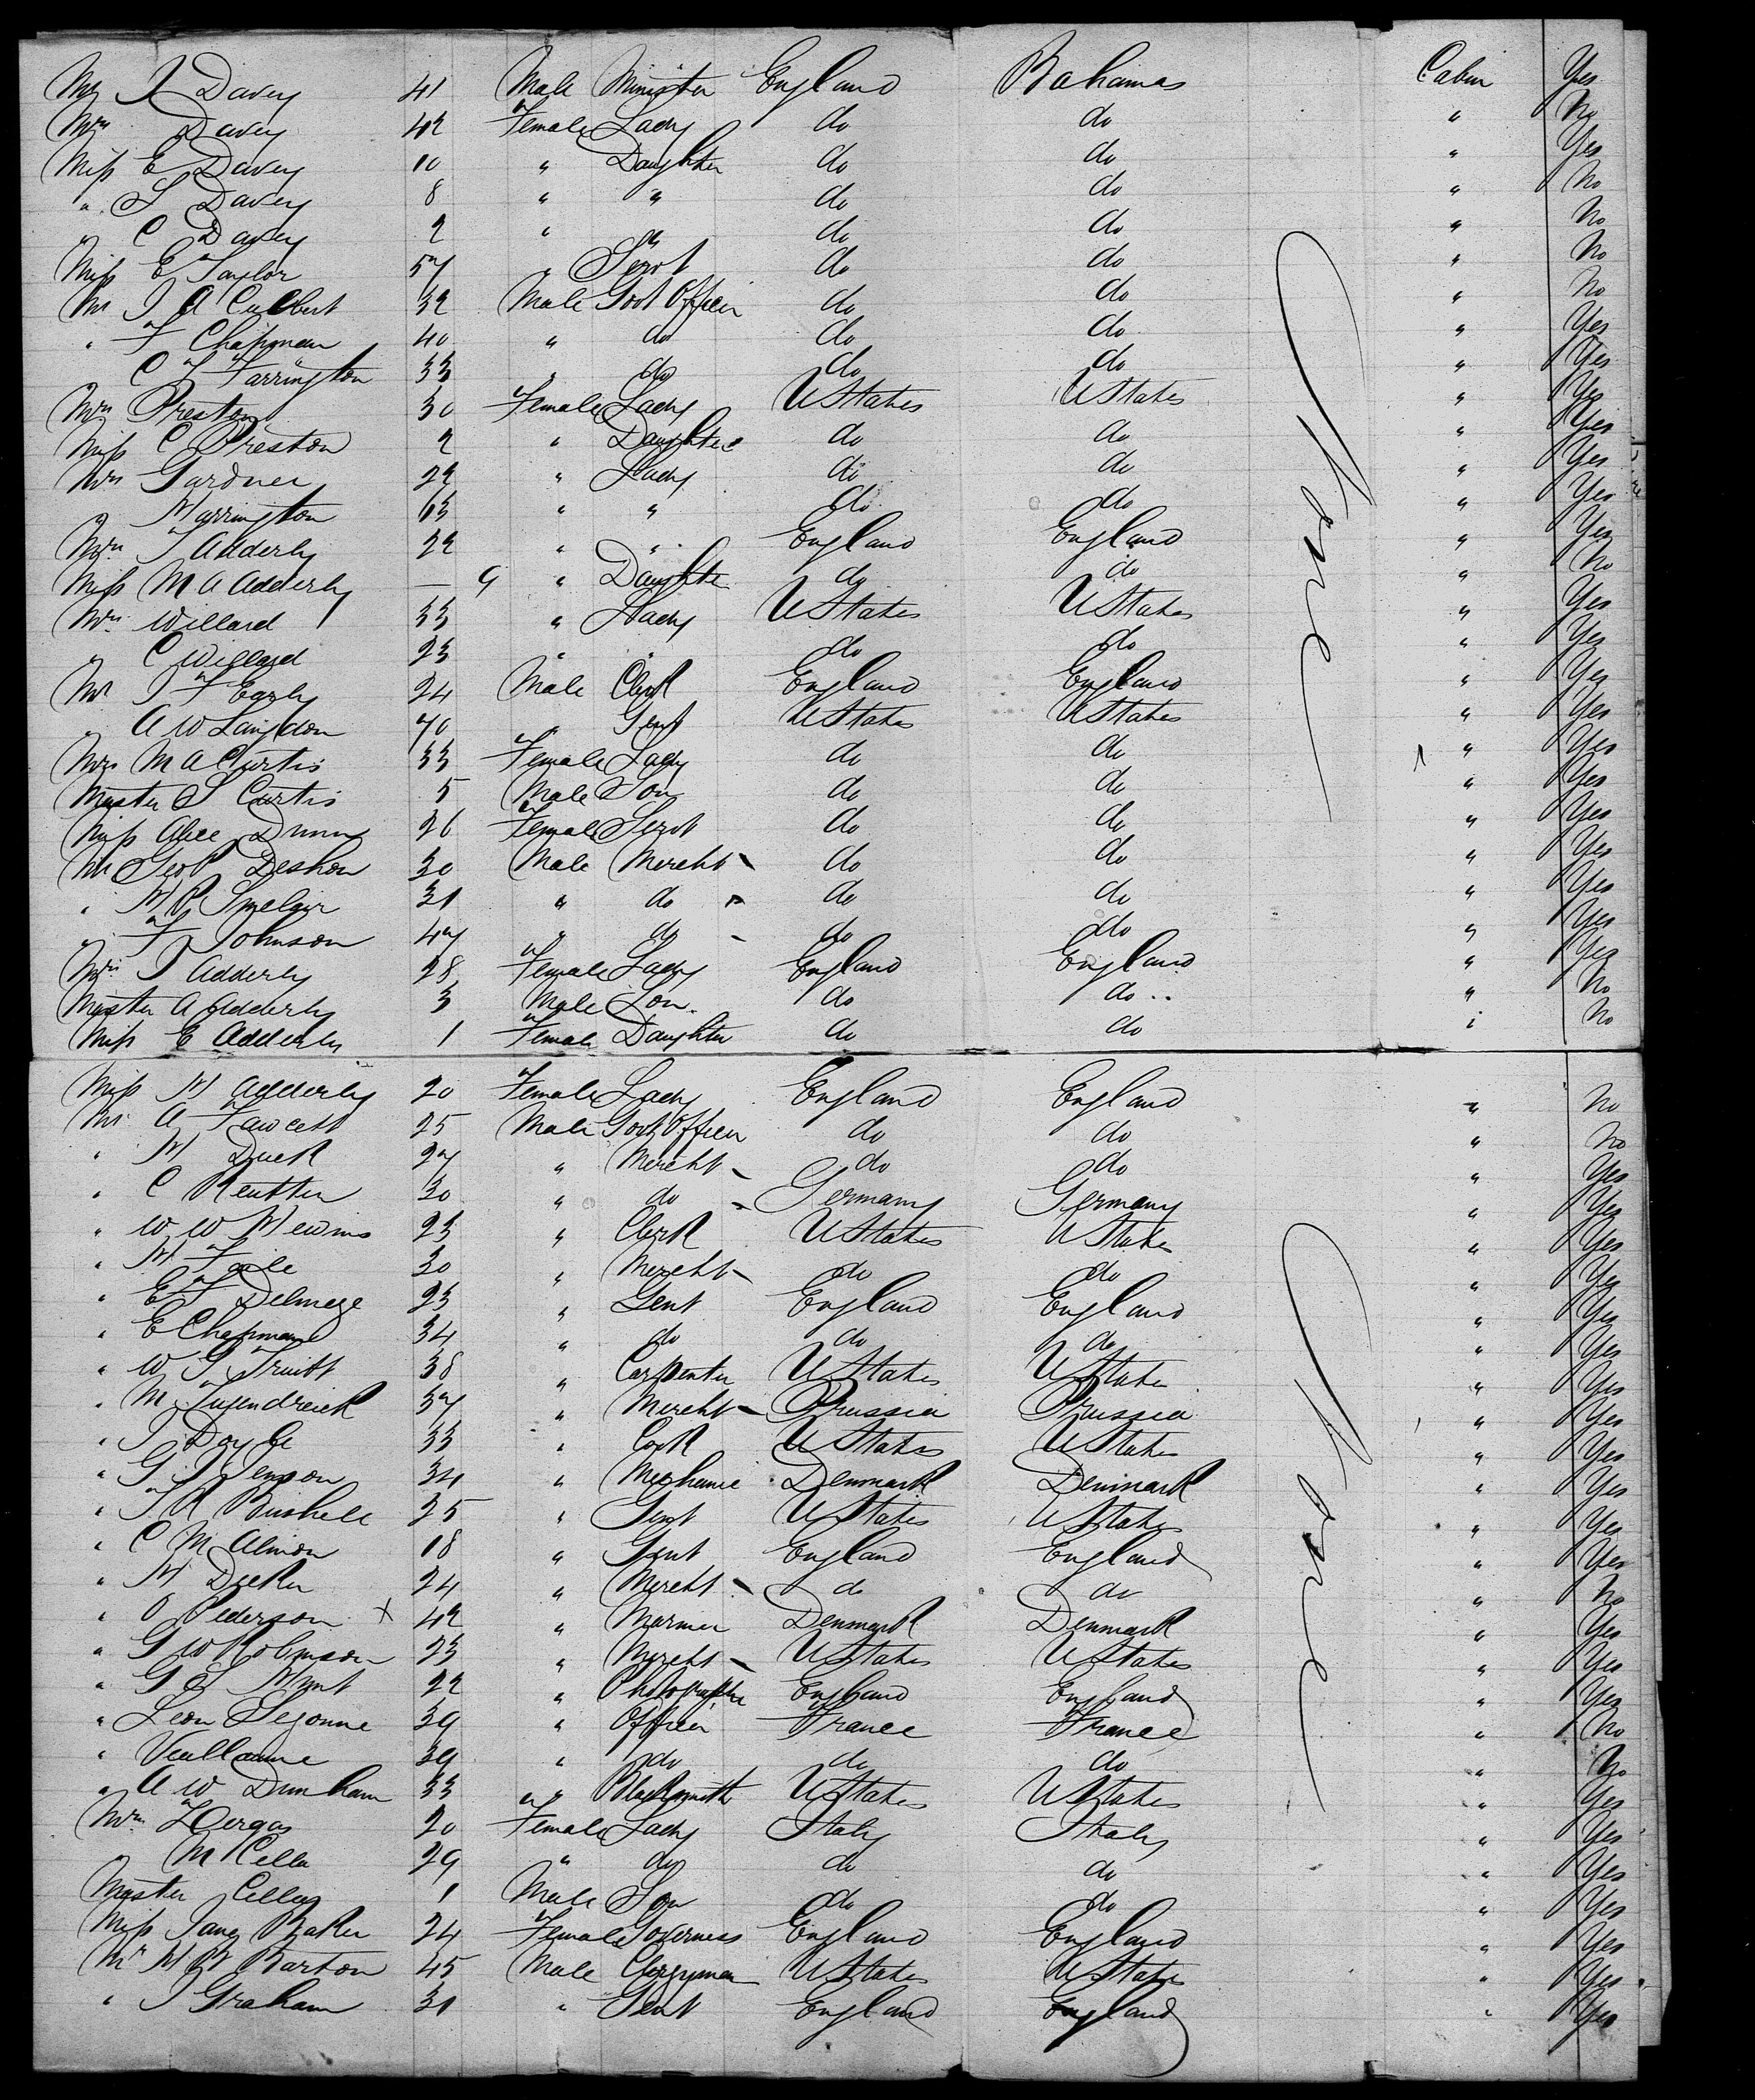 Mr J Davey 41 Male Minister England Bahamas Cabin Yes
Mrs Davey 42 Female Lady do do " No
Miss E Davey 10 " Daughter do do " Yes
" S Davey 8 " " do do " No
" C Davey 2 " " do do " No
Miss E Taylor 57 " Servt do do " No
Mr J A Culbert 32 Male Govt Officer do do " No
" F Chapman 40 " do do do " Yes
C F Farrington 33 " do do do " Yes
Mrs Preston 30 Female Lady U States U States " Yes
Miss C Preston 2 " Daughter do do " Yes
Mrs Gardner 22 " Lady do do " Yes
" Harrington 63 " " do do " Yes
Mrs T Adderly 22 " " England England " Yes
Miss M A Adderly — 9 " Daughter do do " No
Mrs Willard 33 " Lady U States U States " Yes
" C Willard 23 " " do do " Yes
Mr J F Early 24 Male Clerk England England " Yes
" A W Langdon 40 " Gent U States U States " Yes
Mrs M A Curtis 33 Female Lady do do " Yes
Master S Curtis 5 Male Son do do " Yes
Miss Alice Dunn 26 Female Servt do do " Yes
Mr Geo P Deshon 30 Male Mercht do do " Yes
" H R Sinclair 31 " do do do " Yes
" F Johnson 47 " do do do " Yes
Mrs J Adderly 28 Female Lady England England " Yes
Master A Adderly 3 Male Son do do " No
Miss E Adderly 1 Female Daughter do do " No
Miss H Adderly 20 Female Lady England England " No
Mr A Fawcett 25 Male Govt Officer do do " No
" H Duck 27 " Mercht do do " Yes
" C Reutter 30 " do Germany Germany " Yes
" W W Hewins 23 " Clerk U States U States " Yes
" H Foile 30 " Mercht do do " Yes
" E F Delmege 23 " Gent England England " Yes
" E Chapman 34 " do do do " Yes
" W G Truitt 38 " Carpenter U States U States " Yes
" M Tugendreick 37 " Mercht Prussia Prussia " Yes
" J Doyle 33 " Cook U States U States " Yes
" G J Jenson 34 " Mechanic Denmark Denmark " Yes
" T R Bushell 25 " Gent U States U States " Yes
" C M Almon 18 " Gent England England " Yes
" H Ducker 24 " Mercht do do " No
" O Pederson x 42 " Mariner Denmark Denmark " Yes
" G W Robinson 23 " Mercht U States U States " Yes
" G S Hunt 22 " Photographer England England " Yes
" Leon Segonne 39 " Officer France France " No
" 39 " do do do " No
" A W Dunham 33 " Blacksmith U States U States " Yes
Mrs 20 Female Lady Italy Italy " Yes
" M Cella 29 " do do do " Yes
Master Cella 1 Male Son do do " Yes
Miss Jane Baker 24 Female Governess England England " Yes
Mr H B Barton 45 Male Clergyman U States U States " Yes
" J Graham 31 " Gent England England " Yes